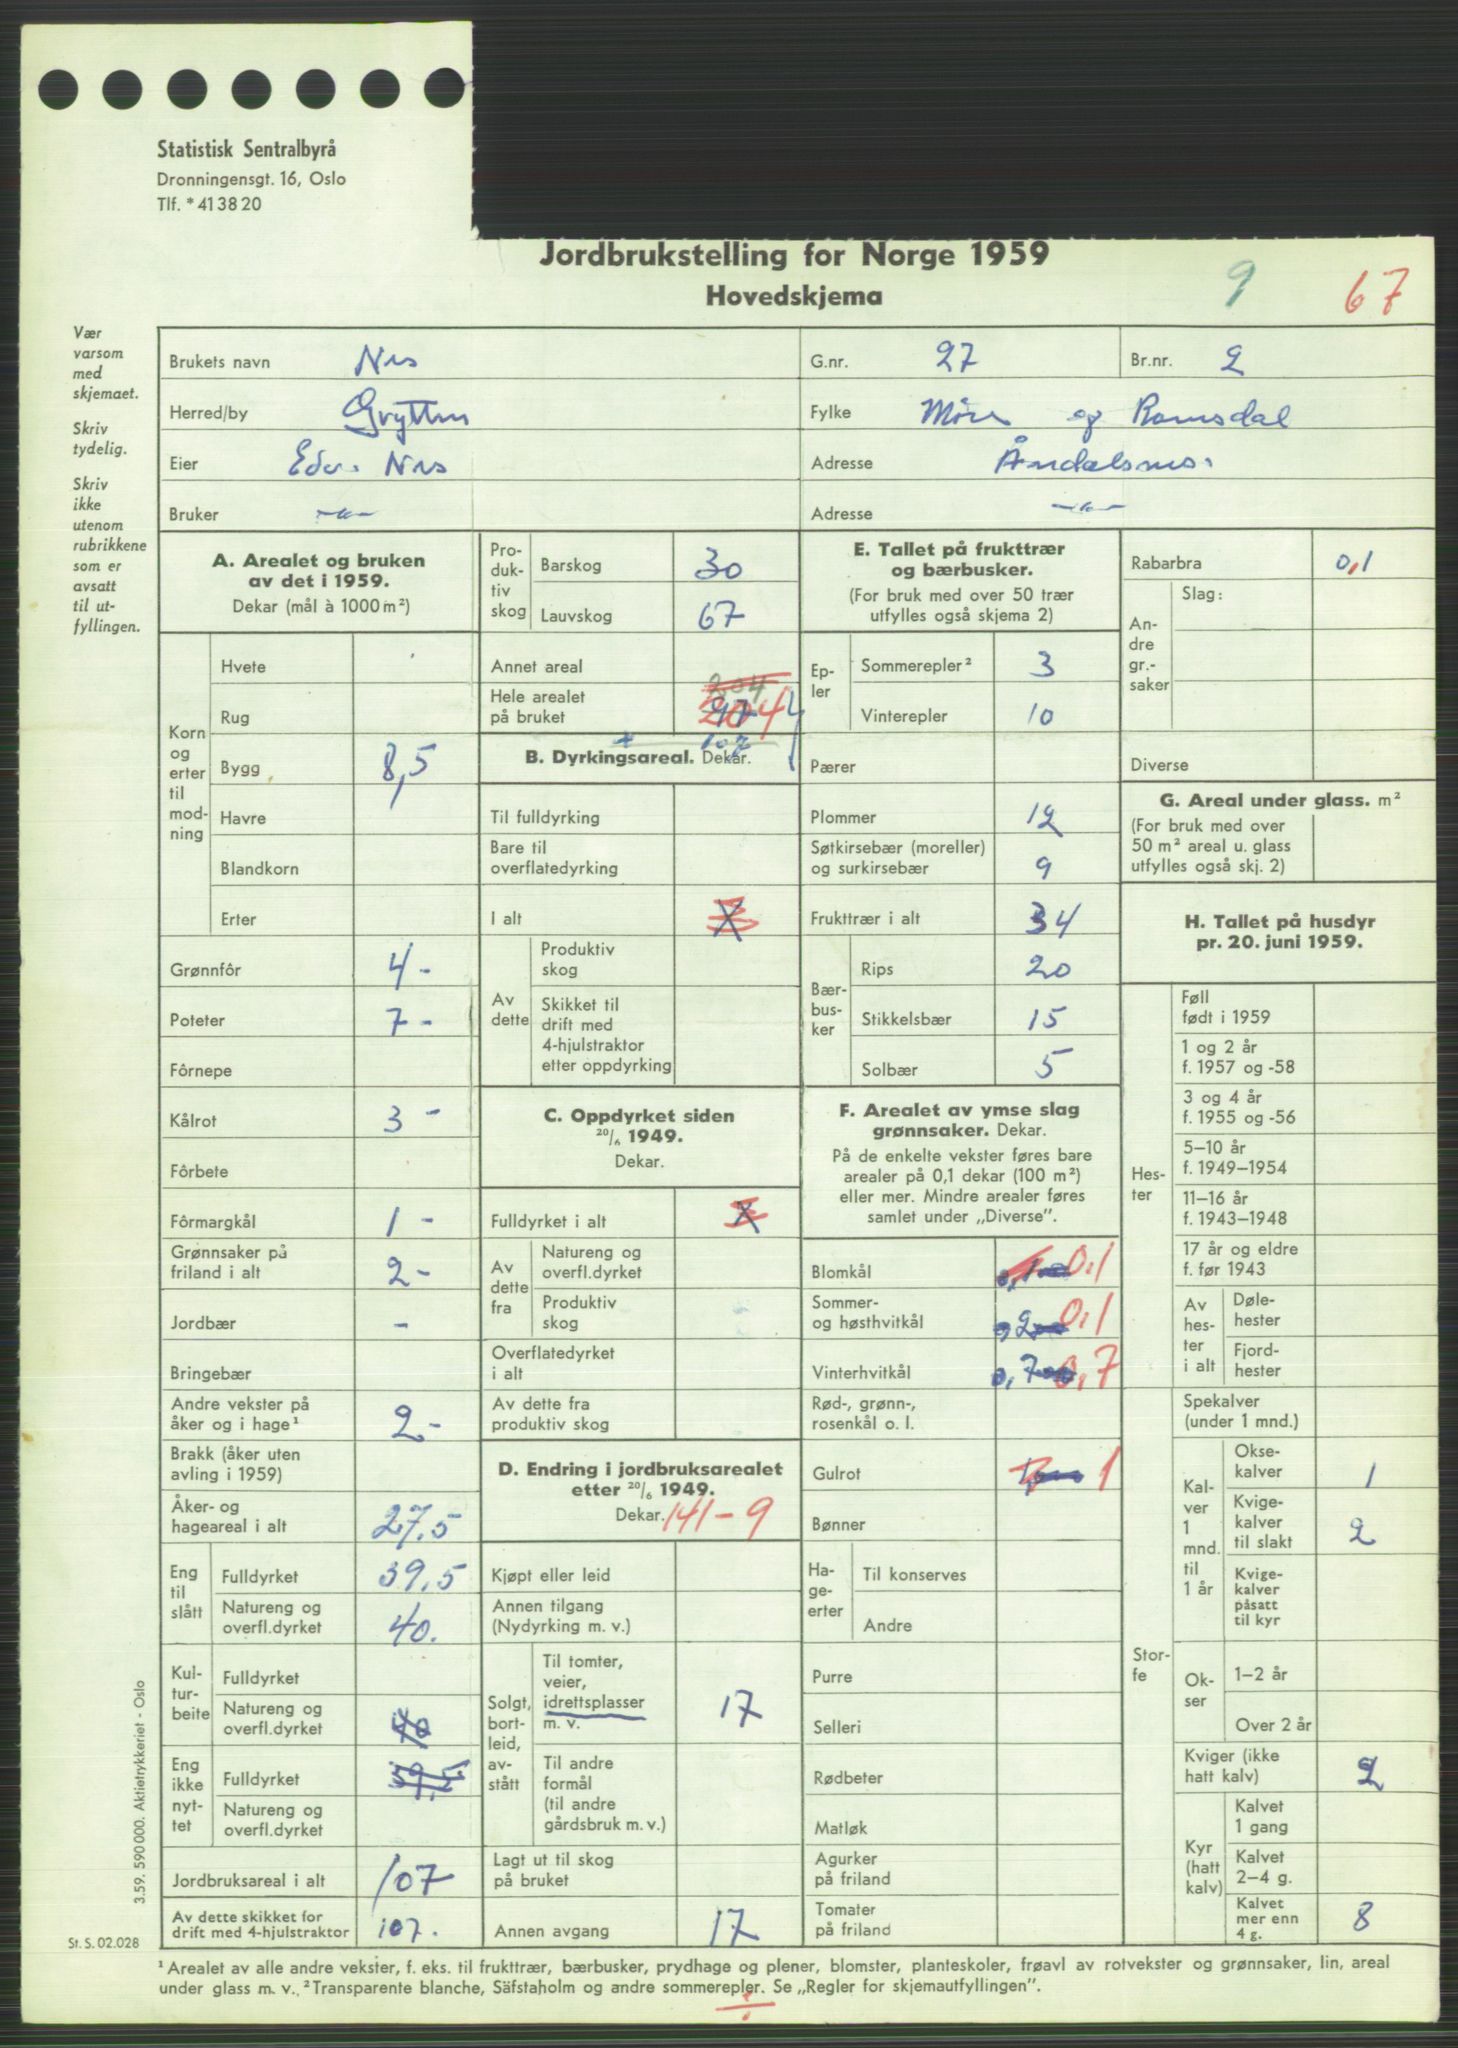 Statistisk Sentralbyrå
Dronningensgt. 16, Oslo
Tlf. * 41 38 20
Jordbrukstelling for Norge 1959
Hovedskjema
9 67
Vær
varsom
med
skjemaet.
Skriv
tydelig.
Skriv
ikke
utenom
rubrikkene
som er
avsatt
til ut-
fyllingen.
Brukets navn Nes G.nr. 27 Br.nr. 2
Herred/by Grytten Fylke Møre og Romsdal
Eier Nes Adresse Åndalsnes.
Bruker —"— Adresse —"—
A. Arealet og bruken
av det i 1959.
Dekar (mål à 1000 m²)
Korn
og
erter
til
mod-
ning
Hvete
Rug
Bygg 8,5
Havre
Blandkorn
Erter
Grønnfôr 4 -
Poteter 7 -
Fôrnepe
Kålrot 3 -
Fôrbete
Fôrmargkål 1 -
Grønnsaker på
friland i alt 2 -
Jordbær -
Bringebær
Andre vekster på
åker og i hage¹ 2 -
Brakk (åker uten
avling i 1959)
Åker- og
hageareal i alt 27,5
Eng
til
slått
Fulldyrket 39,5
Natureng og
overfl.dyrket 40.
Kul-
tur-
beite
Fulldyrket
Natureng og
overfl.dyrket 40
Eng
ikke
nyt-
tet
Fulldyrket 39,5
Natureng og
overfl.dyrket
Jordbruksareal i alt 107
Av dette skikket for
drift med 4-hjulstraktor 107.
Pro-
duk-
tiv
skog
Barskog 30
Lauvskog 67
Annet areal
204
Hele arealet
på bruket 97 204
+ 107
B. Dyrkingsareal. Dekar.
Til fulldyrking
Bare til
overflatedyrking
I alt X
Av
dette
Produktiv
skog
Skikket til
drift med
4-hjulstraktor
etter oppdyrking
C. Oppdyrket siden
20/6 1949.
Dekar.
Fulldyrket i alt X
Av
dette
fra
Natureng og
overfl.dyrket
Produktiv
skog
Overflatedyrket
i alt
Av dette fra
produktiv skog
D. Endring i jordbruksarealet
etter 20/6 1949.
Dekar. 141 - 9
Kjøpt eller leid
Annen tilgang
(Nydyrking m. v.)
Solgt,
bort-
leid,
av-
stått
Til tomter,
veier,
idrettsplasser
m. v. 17
Til andre
formål
(til andre
gårdsbruk m. v.)
Lagt ut til skog
på bruket
Annen avgang 17
E. Tallet på frukttrær
og bærbusker.
(For bruk med over 50 trær
utfylles også skjema 2)
Ep-
ler
Sommerepler² 3
Vinterepler 10
Pærer
Plommer 12
Søtkirsebær (moreller)
og surkirsebær 9
Frukttrær i alt 34
Bær-
bus-
ker
Rips 20
Stikkelsbær 15
Solbær 5
F. Arealet av ymse slag
grønnsaker. Dekar.
På de enkelte vekster føres bare
arealer på 0,1 dekar (100 m²)
eller mer. Mindre arealer føres
samlet under „Diverse”.
Blomkål 0,1
Sommer-
og høsthvitkål 0,2 0,1
Vinterhvitkål 0,7 0,7
Rød-, grønn-,
rosenkål o. l.
Gulrot 1
Bønner
Ha-
ge-
erter
Til konserves
Andre
Purre
Selleri
Rødbeter
Matløk
Agurker
på friland
Tomater
på friland
Rabarbra 0,1
An-
dre
gr.-
saker
Slag:
Diverse
G. Areal under glass. m²
(For bruk med over
50 m² areal u. glass
utfylles også skj. 2)
H. Tallet på husdyr
pr. 20. juni 1959.
Hes-
ter
Føll
født i 1959
1 og 2 år
f. 1957 og -58
3 og 4 år
f. 1955 og -56
5–10 år
f. 1949–1954
11–16 år
f. 1943–1948
17 år og eldre
f. før 1943
Av
hes-
ter
i alt
Døle-
hester
Fjord-
hester
Stor-
fe
Spekalver
(under 1 mnd.)
Kal-
ver
1
mnd.
til
1 år
Okse-
kalver 1
Kvige-
kalver
til slakt 2
Kvige-
kalver
påsatt
til kyr
Ok-
ser
1–2 år
Over 2 år
Kviger (ikke
hatt kalv) 2
Kyr
(hatt
kalv)
Kalvet
1 gang
Kalvet
2–4 g.
Kalvet
mer enn
4 g. 8
3.59. 590 000. Aktietrykkeriet - Oslo
St. S. 02.028
¹ Arealet av alle andre vekster, f. eks. til frukttrær, bærbusker, prydhage og plener, blomster, planteskoler, frøavl av rotvekster og grønnsaker, lin, areal
under glass m. v. ² Transparente blanche, Säfstaholm og andre sommerepler. Se „Regler for skjemautfyllingen”.